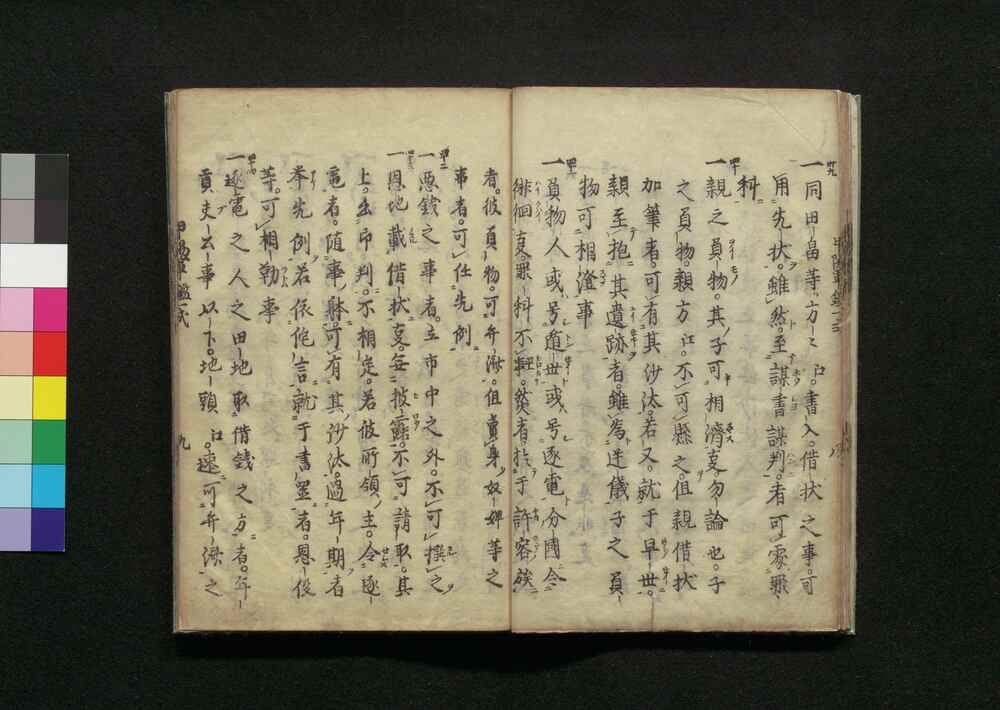 一同田畠等方々江書入借状之事可
用先状雖然至謀書謀判者可處罪
科
一親之負物其子可相濟叓勿論也子
之負物親方江不可懸之但親借状
加筆者可有其沙汰若又就于早世
親至抱其遺跡者雖為逆儀子之負
物可相澄事
一負物人或号遁世或号逐電分國令
徘徊叓罪科不輕然者於于許容族
者彼負物可弁済但賣身奴婢等之
事者可任先例
一悪銭之事者立市中之外不可撰之
一恩地載借状叓毎披露不可請取其
上出印判不相定若彼所領主令逐
電者随事躰可有其沙汰過年期者
孝先例若依他言就于書置者恩役
等可相勤事
一逐電之人之田地取借銭之方者年
貢夫公事以下地頭江速可弁済之
九